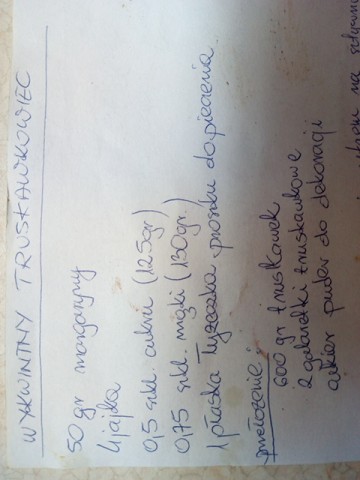 WYKWINTNY TRUSKAWKOWIEC
50 gr margaryny
4 jajka
0,5 szkl. cukru (125gr)
0,75 szkl. mąki (130gr.)
1 płaska łyżeczka proszku do pieczenia
przełożenie:
600 gr truskawek
2 galaretki truskawkowe
cukier puder do dekoracji
na